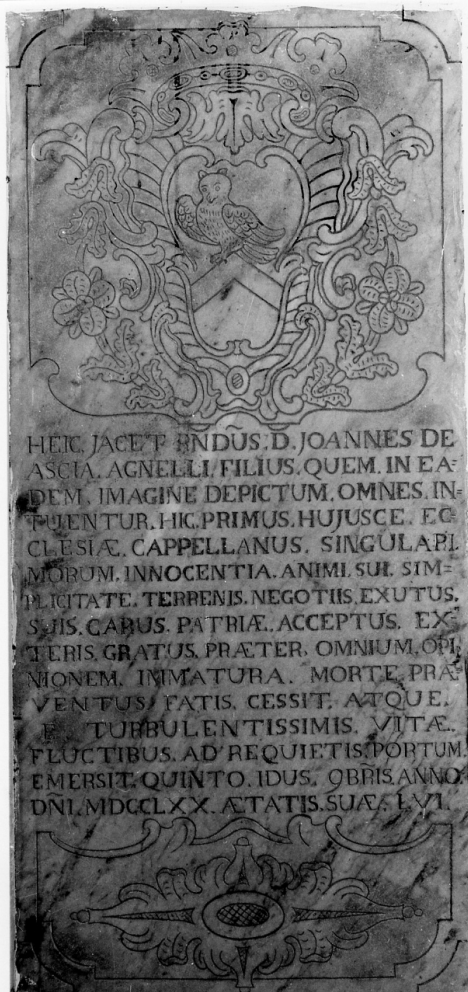 HEIC. JACET RNDŨS. D. JOANNES DE
ASCIA. AGNELLI. FILIUS. QUEM. IN EA=
DEM. IMAGINE DEPICTUM. OMNES. IN=
TUENTUR. HIC. PRIMUS. HUJUSCE. EC=
CLESIÆ. CAPPELLANUS. SINGULARI.
MORUM. INNOCENTIA. ANIMI. SUI. SIM=
PLICITATE. TERRENIS. NEGOTIIS. EXUTUS.
SUIS. CARUS. PATRIÆ. ACCEPTUS. EX=
TERIS. GRATUS. PRÆTER. OMNIUM. OPI
NIONEM. IMMATURA. MORTE. PRÆ=
VENTUS. FATIS. CESSIT. ATQUE.
E. TURBULENTISSIMIS. VITÆ.
FLUCTIBUS. AD REQUIETIS. PORTUM
EMERSIT. QUINTO. IDUS. 9BRĨS. ANNO
DÑI. MDCCLXX. ÆTATIS. SUÆ. LVI.